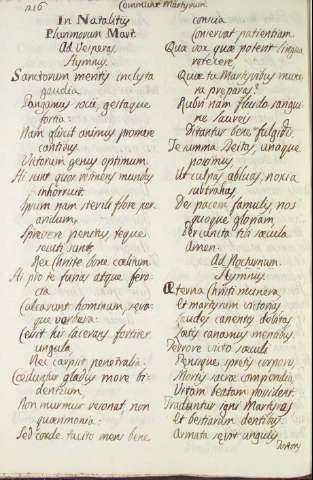 216
Commune Martyrum.
In Natalitijs
Plurimorum Mart.
Ad Vesperas.
Hymnus.
Sanctorum meritis inclyta
gaudia
Pangamus socii, gestaque
fortia:
Nam gliscit animus promere
cantibus
Victorum genus optimum.
Hi sunt quos retinens mundus
inhorruit,
Ipsum nam sterili flore per
aridum,
Sprevere penitus, teque
secuti sunt,
Rex Christe bone cælitum.
Hi pro te furias atque fero
cia
Calcarunt hominum, sæva
que verbera:
Cessit his lacerans fortiter
ungula
Nec carpsit penetralia.
Cæduntur gladiis more bi
dentium,
Non murmur resonat, non
quærimonia:
Sed corde tacito mens bene
conscia
Conservat patientiam.
Quæ vox, quæ poterit lingua
retexere,
Quæ tu Martyribus mune
ra præparas?
Rubri nam fluido sangui
ne laureis
Ditantur bene fulgidis.
Te summa Deitas, unaque
poscimus,
Ut culpas abluas, noxia
subtrahas,
Des pacem famulis, nos
quoque gloriam
Per cuncta tibi sæcula.
Amen.
Ad Nocturnum.
Hymnus.
Æterna Christi munera,
Et martyrum victorias
Laudes canentes debitas
Lætis canamus mentibus.
Terrore victo sæculi
Pœnisque spretis corporis,
Mortis sacræ compendio
Vitam beatam possident.
Traduntur igni Martyres
Et bestiarum dentibus
Armata sævit ungulis